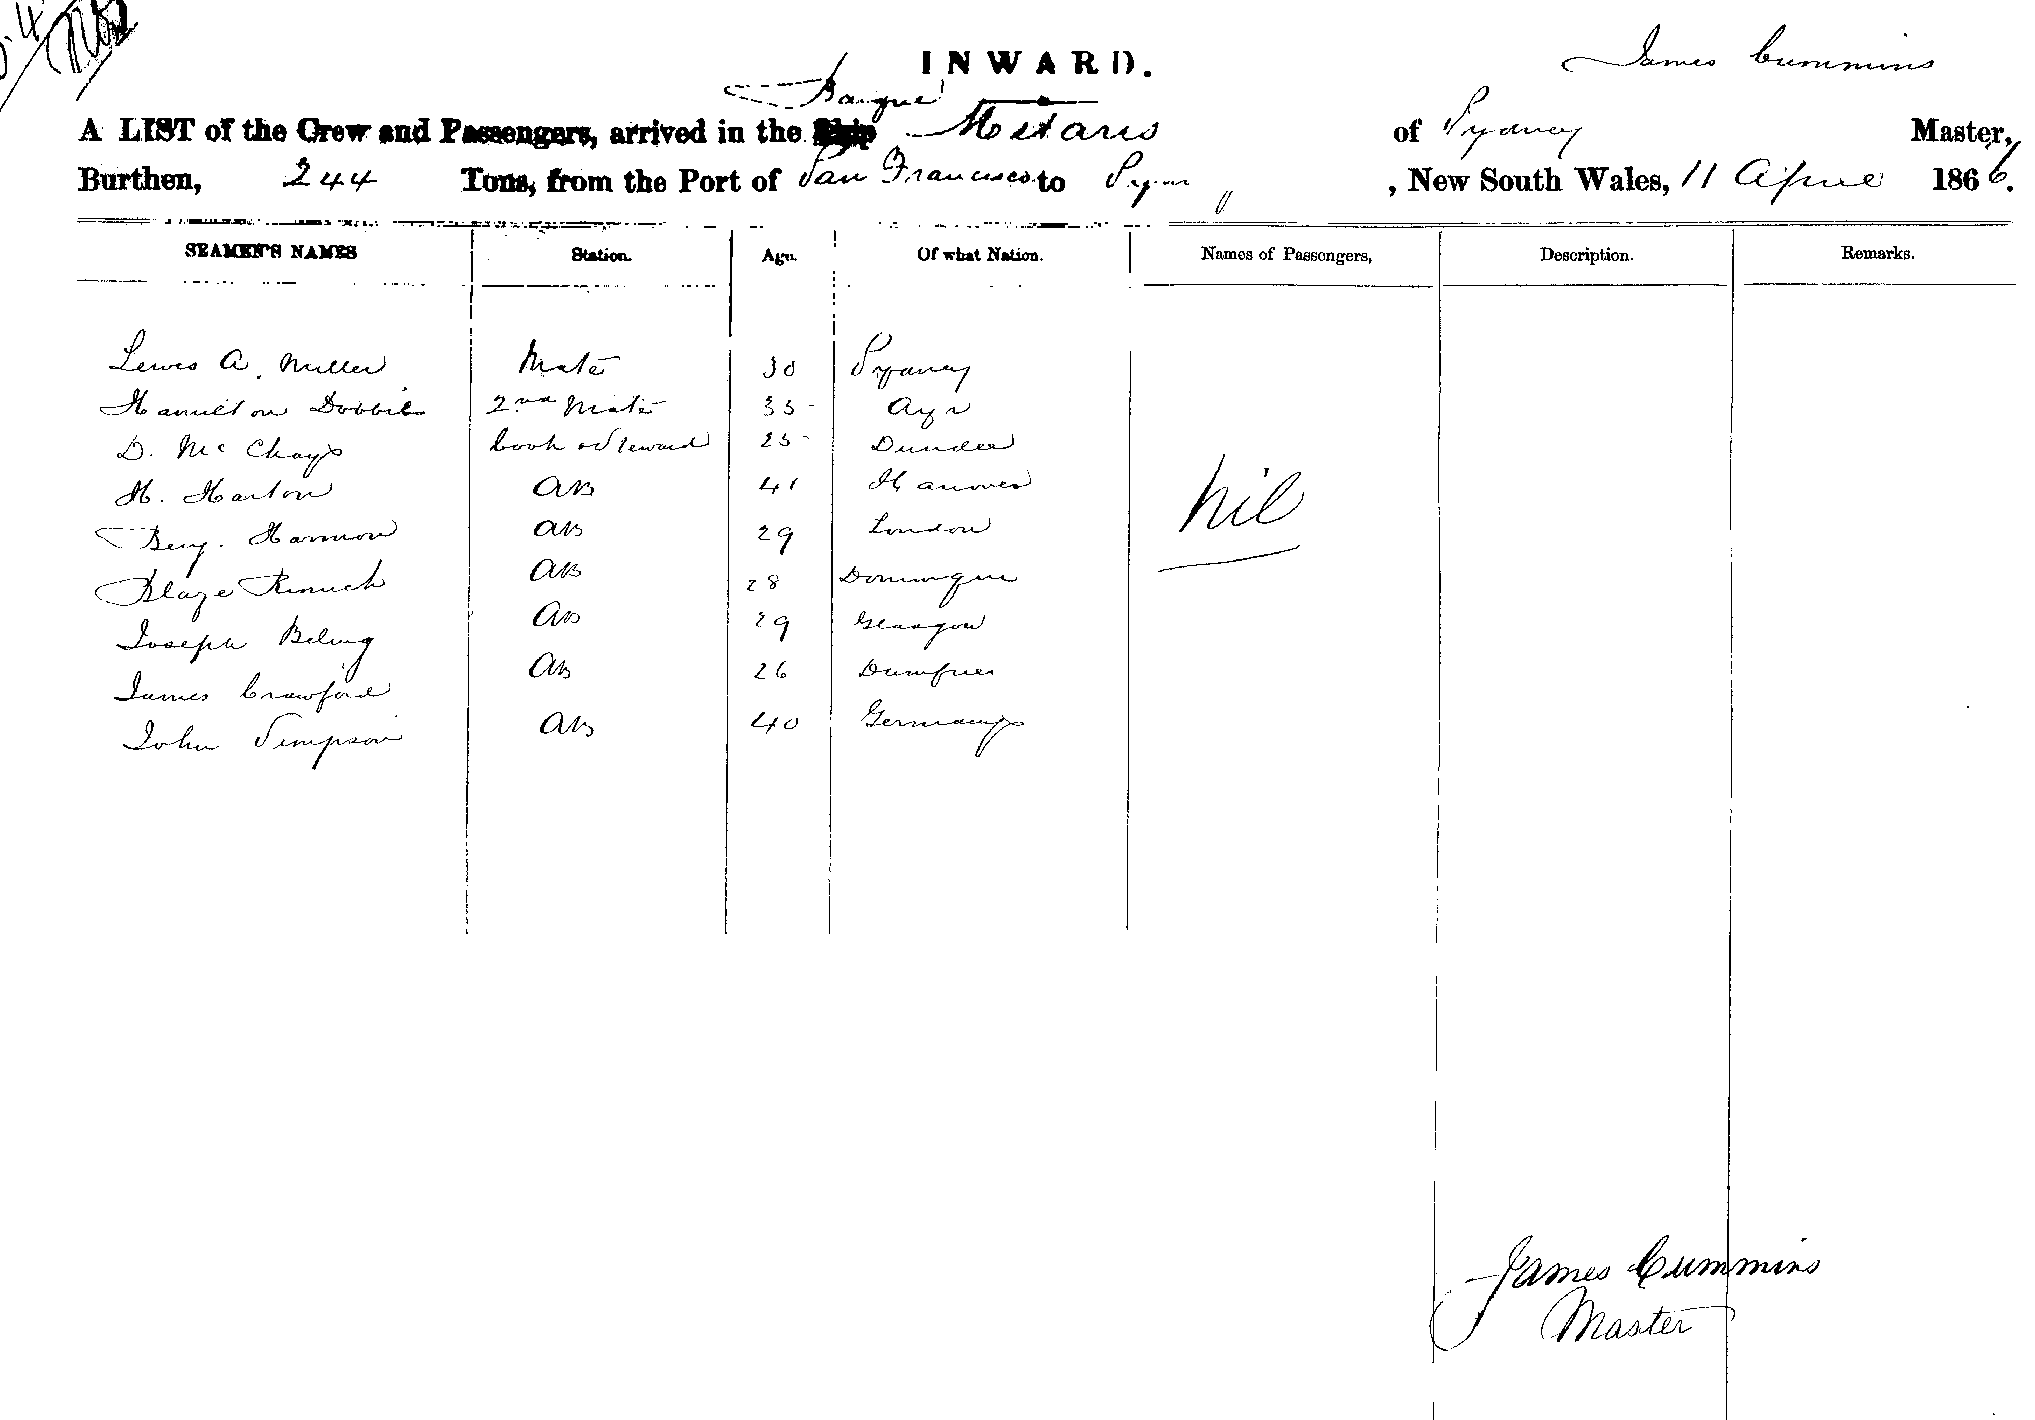 INWARD.
James Cummins
Barque
A LIST of the Crew and Passengers, arrived in the Ship Metaris of Sydney Master,
Burthen, 244 Tons, from the Port of San Francisco to , New South Wales, 11 April 1866.
SEAMEN'S NAMES Station. Age. Of what Nation. Names of Passengers, Description. Remarks.
Lewis A. Miller Mate 30 Sydney
Hamilton Dobbie 2nd Mate 35 Ayr
D. Mc Cook & Steward 25 Dundee
H. Harton AB 41 Hanover
Nil
Benj. Harmon AB 29 London
Blaze AB 28
Joseph AB 29 Glasgow
James Crawford AB 26 Dumfries
John Simpson AB 40 Germany
James Cummins
Master